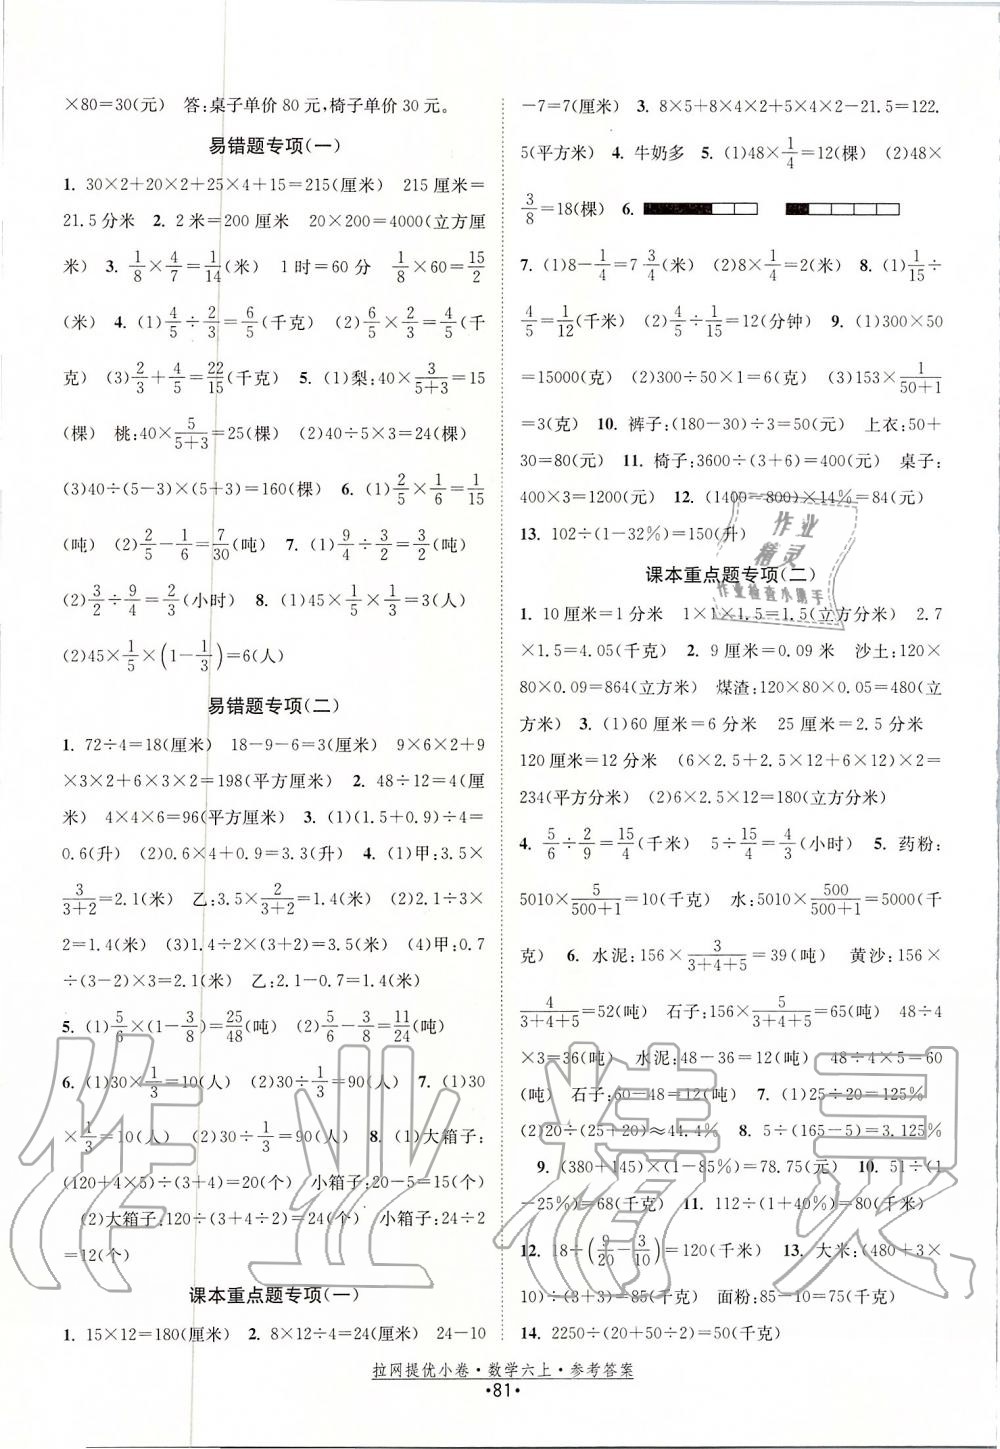 ×80=30(元)　答:桌子单价 80 元,椅子单价 30 元。
易错题专项(一)
1. 30×2+20×2+25×4+15=215(厘米)　215 厘米=
21.5 分米　2. 2 米=200 厘米　20×200=4000(立方厘
米)　3. 1/8×4/7=1/14(米)　1 时=60 分　1/8×60=15/2
(米)　4. (1)4/5÷2/3=6/5(千克)　(2)6/5×2/3=4/5(千
克)　(3)2/3+4/5=22/15(千克)　5. (1)梨:40×3/(5+3)=15
(棵)　桃:40×5/(5+3)=25(棵)　(2)40÷5×3=24(棵)
(3)40÷(5-3)×(5+3)=160(棵)　6. (1)2/5×1/6=1/15
(吨)　(2)2/5-1/6=7/30(吨)　7. (1)9/4÷3/2=3/2(吨)
(2)3/2÷9/4=2/3(小时)　8. (1)45×1/5×1/3=3(人)
(2)45×1/5×(1-1/3)=6(人)
易错题专项(二)
1. 72÷4=18(厘米)　18-9-6=3(厘米)　9×6×2+9
×3×2+6×3×2=198(平方厘米)　2. 48÷12=4(厘
米)　4×4×6=96(平方厘米)　3. (1)(1.5+0.9)÷4=
0.6(升)　(2)0.6×4+0.9=3.3(升)　4. (1)甲:3.5×
3/(3+2)=2.1(米)　乙:3.5×2/(3+2)=1.4(米)　(2)2.1÷3×
2=1.4(米)　(3)1.4÷2×(3+2)=3.5(米)　(4)甲:0.7
÷(3-2)×3=2.1(米)　乙:2.1-0.7=1.4(米)
5. (1)5/6×(1-3/8)=25/48(吨)　(2)5/6-3/8=11/24(吨)
6. (1)30×1/3=10(人)　(2)30÷1/3=90(人)　7. (1)30
×1/3=10(人)　(2)30÷1/3=90(人)　8. (1)大箱子:
(120+4×5)÷(3+4)=20(个)　小箱子:20-5=15(个)
(2)大箱子:120÷(3+4÷2)=24(个)　小箱子:24÷2
=12(个)
课本重点题专项(一)
1. 15×12=180(厘米)　2. 8×12÷4=24(厘米)　24-10
-7=7(厘米)　3. 8×5+8×4×2+5×4×2-21.5=122.
5(平方米)　4. 牛奶多　5. (1)48×1/4=12(棵)　(2)48×
3/8=18(棵)　6.
7. (1)8-1/4=7 3/4(米)　(2)8×1/4=2(米)　8. (1)1/15÷
4/5=1/12(千米)　(2)4/5÷1/15=12(分钟)　9. (1)300×50
=15000(克)　(2)300÷50×1=6(克)　(3)153×1/(50+1)
=3(克)　10. 裤子:(180-30)÷3=50(元)　上衣:50+
30=80(元)　11. 椅子:3600÷(3+6)=400(元)　桌子:
400×3=1200(元)　12. (1400-800)×14%=84(元)
13. 102÷(1-32%)=150(升)
课本重点题专项(二)
1. 10 厘米=1 分米　1×1×1.5=1.5(立方分米)　2.7
×1.5=4.05(千克)　2. 9 厘米=0.09 米　沙土:120×
80×0.09=864(立方米)　煤渣:120×80×0.05=480(立
方米)　3. (1)60 厘米=6 分米　25 厘米=2.5 分米
120 厘米=12 分米　(6×2.5+2.5×12+6×12)×2=
234(平方分米)　(2)6×2.5×12=180(立方分米)
4. 5/6÷2/9=15/4(千米)　5÷15/4=4/3(小时)　5. 药粉:
5010×5/(500+1)=10(千克)　水:5010×500/(500+1)=5000(千
克)　6. 水泥:156×3/(3+4+5)=39(吨)　黄沙:156×
4/(3+4+5)=52(吨)　石子:156×5/(3+4+5)=65(吨)　48÷4
×3=36(吨)　水泥:48-36=12(吨)　48÷4×5=60
(吨)　石子:60-48=12(吨)　7. (1)25÷20=125%
(2)20÷(25+20)≈44.4%　8. 5÷(165-5)=3.125%
9. (380+145)×(1-85%)=78.75(元)　10. 51÷(1
-25%)=68(千克)　11. 112÷(1+40%)=80(千米)
12. 18÷(9/20-3/10)=120(千米)　13. 大米:(480+3×
10)÷(3+3)=85(千克)　面粉:85-10=75(千克)
14. 2250÷(20+50÷2)=50(千克)
作业
精灵
作业检查小助手
作业精灵
拉网提优小卷·数学六上·参考答案
·81·